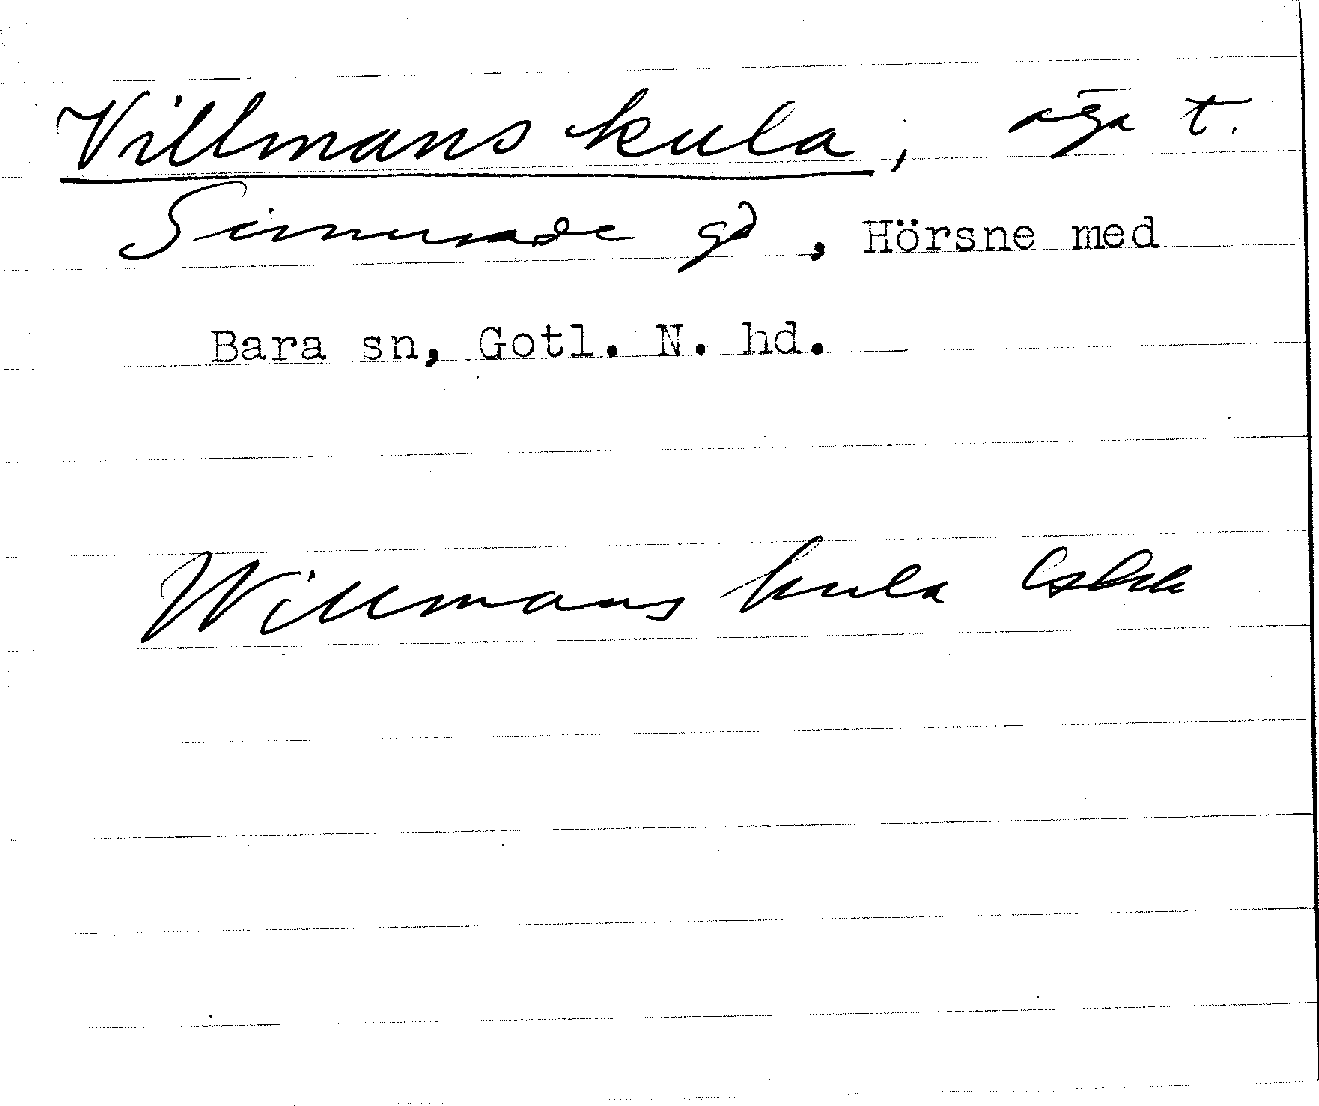 Villmans kula, äga t.
Simunde gd, Hörsne med
Bara sn, Gotl. N. hd.
Willmans kula